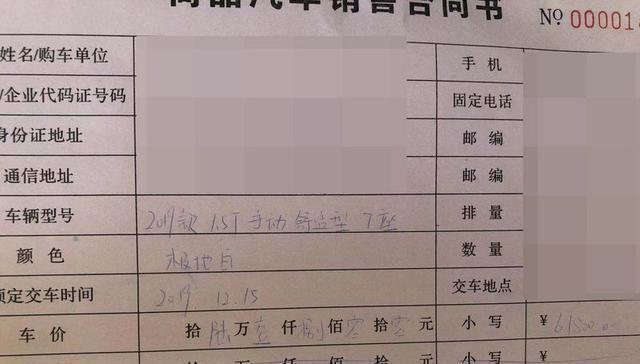 商品汽车销售合同书 № 00001
姓名/购车单位 手机
/企业代码证号码 固定电话
身份证地址 邮编
通信地址 邮编
车辆型号 2019款 1.5T 手动 舒适型 7座 排量
颜色 极地白 数量
预定交车时间 2019 12.15 交车地点
车价 拾 陆 万 壹 仟 捌 佰 零 拾 零 元 小写 ¥